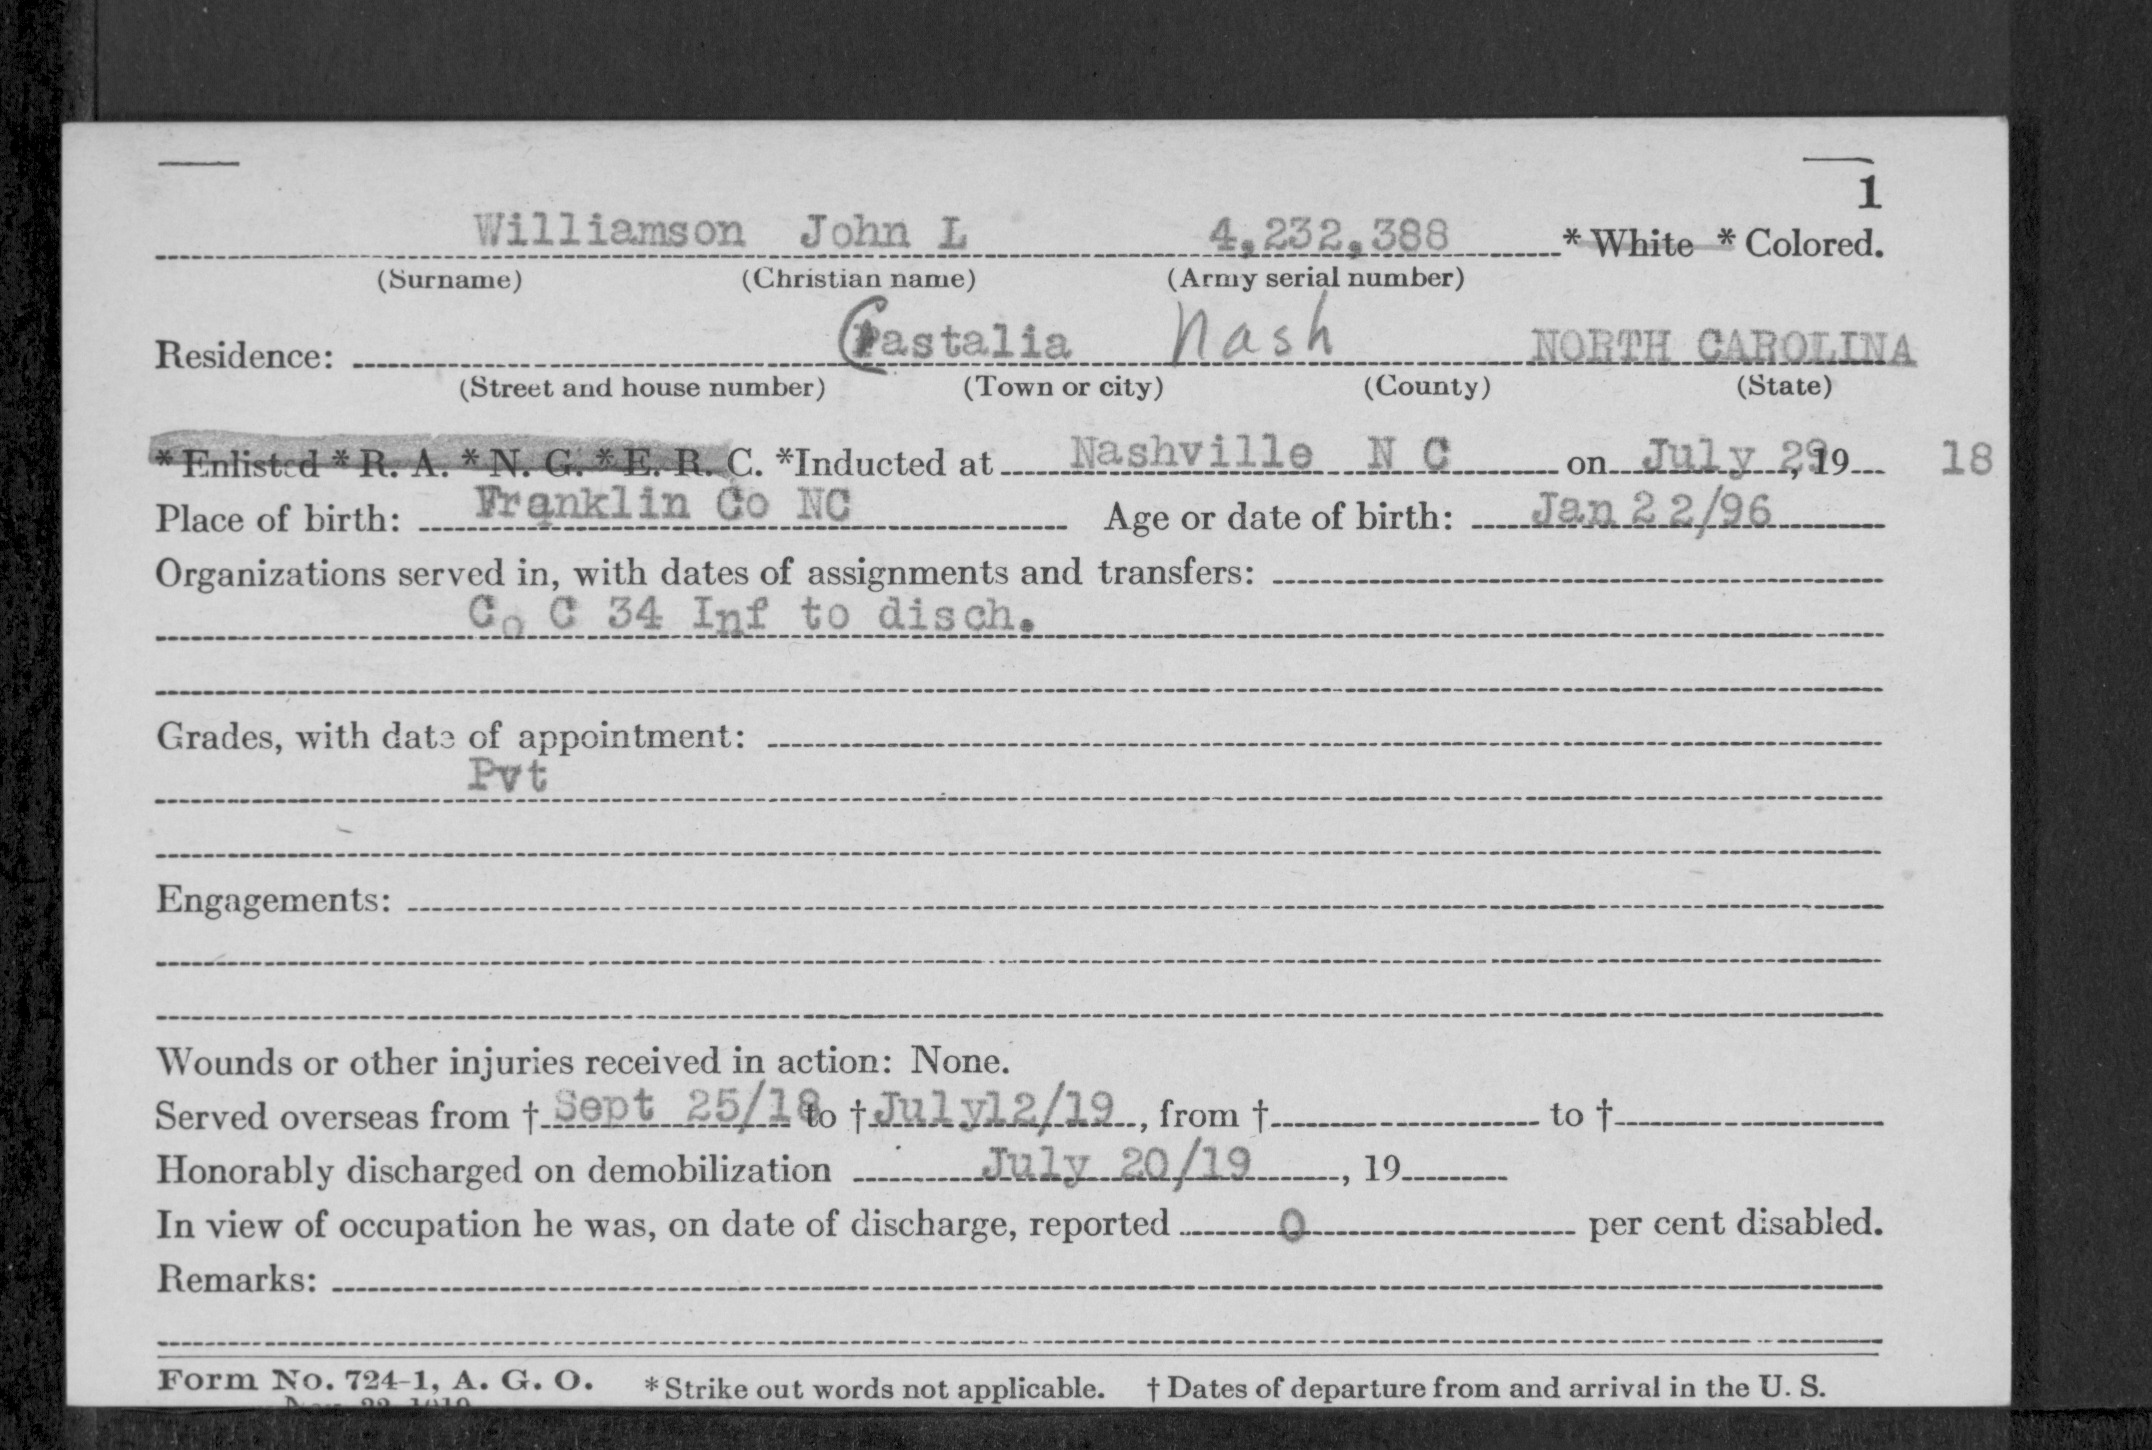 1
Williamson John L 4,232,388 * White * Colored.
(Surname) (Christian name) (Army serial number)
Residence: Castalia Nash NORTH CAROLINA
(Street and house number) (Town or city) (County) (State)
* Enlisted * R. A. * N. G. * E. R. C. *Inducted at Nashville N C on July 29, 19 18
Place of birth: Franklin Co NC Age or date of birth: Jan 22/96
Organizations served in, with dates of assignments and transfers:
Co C 34 Inf to disch.
Grades, with date of appointment:
Pvt
Engagements:
Wounds or other injuries received in action: None.
Served overseas from † Sept 25/18 to † July12/19, from † to †
Honorably discharged on demobilization July 20/19, 19
In view of occupation he was, on date of discharge, reported 0 per cent disabled.
Remarks:
Form No. 724-1, A. G. O. * Strike out words not applicable. † Dates of departure from and arrival in the U. S.